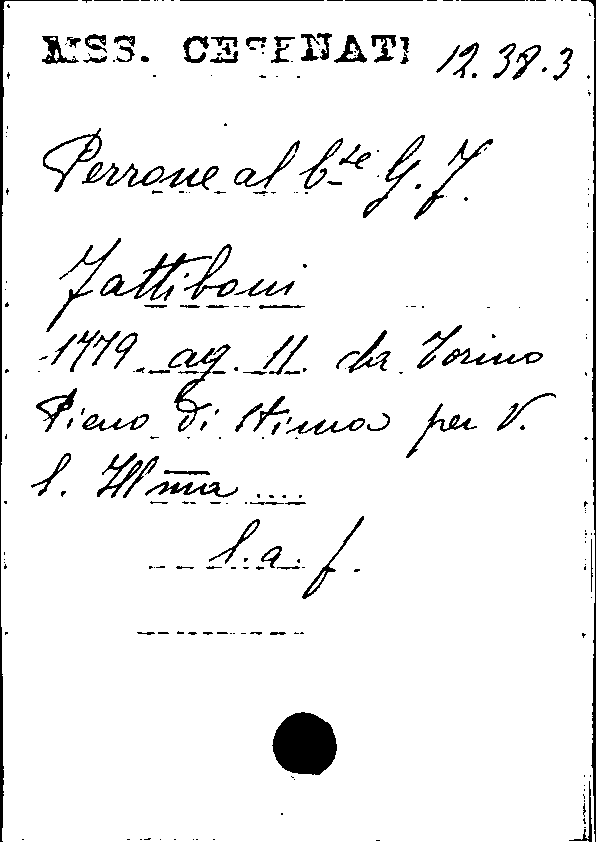 MSS. CESENATI 12.38.3
Perrone al b.te G. F.
Fattiboni
1779 ag. 11. da Torino
Pieno di stima per V.
S. Ill̅m̅a̅ ....
l. a. f.